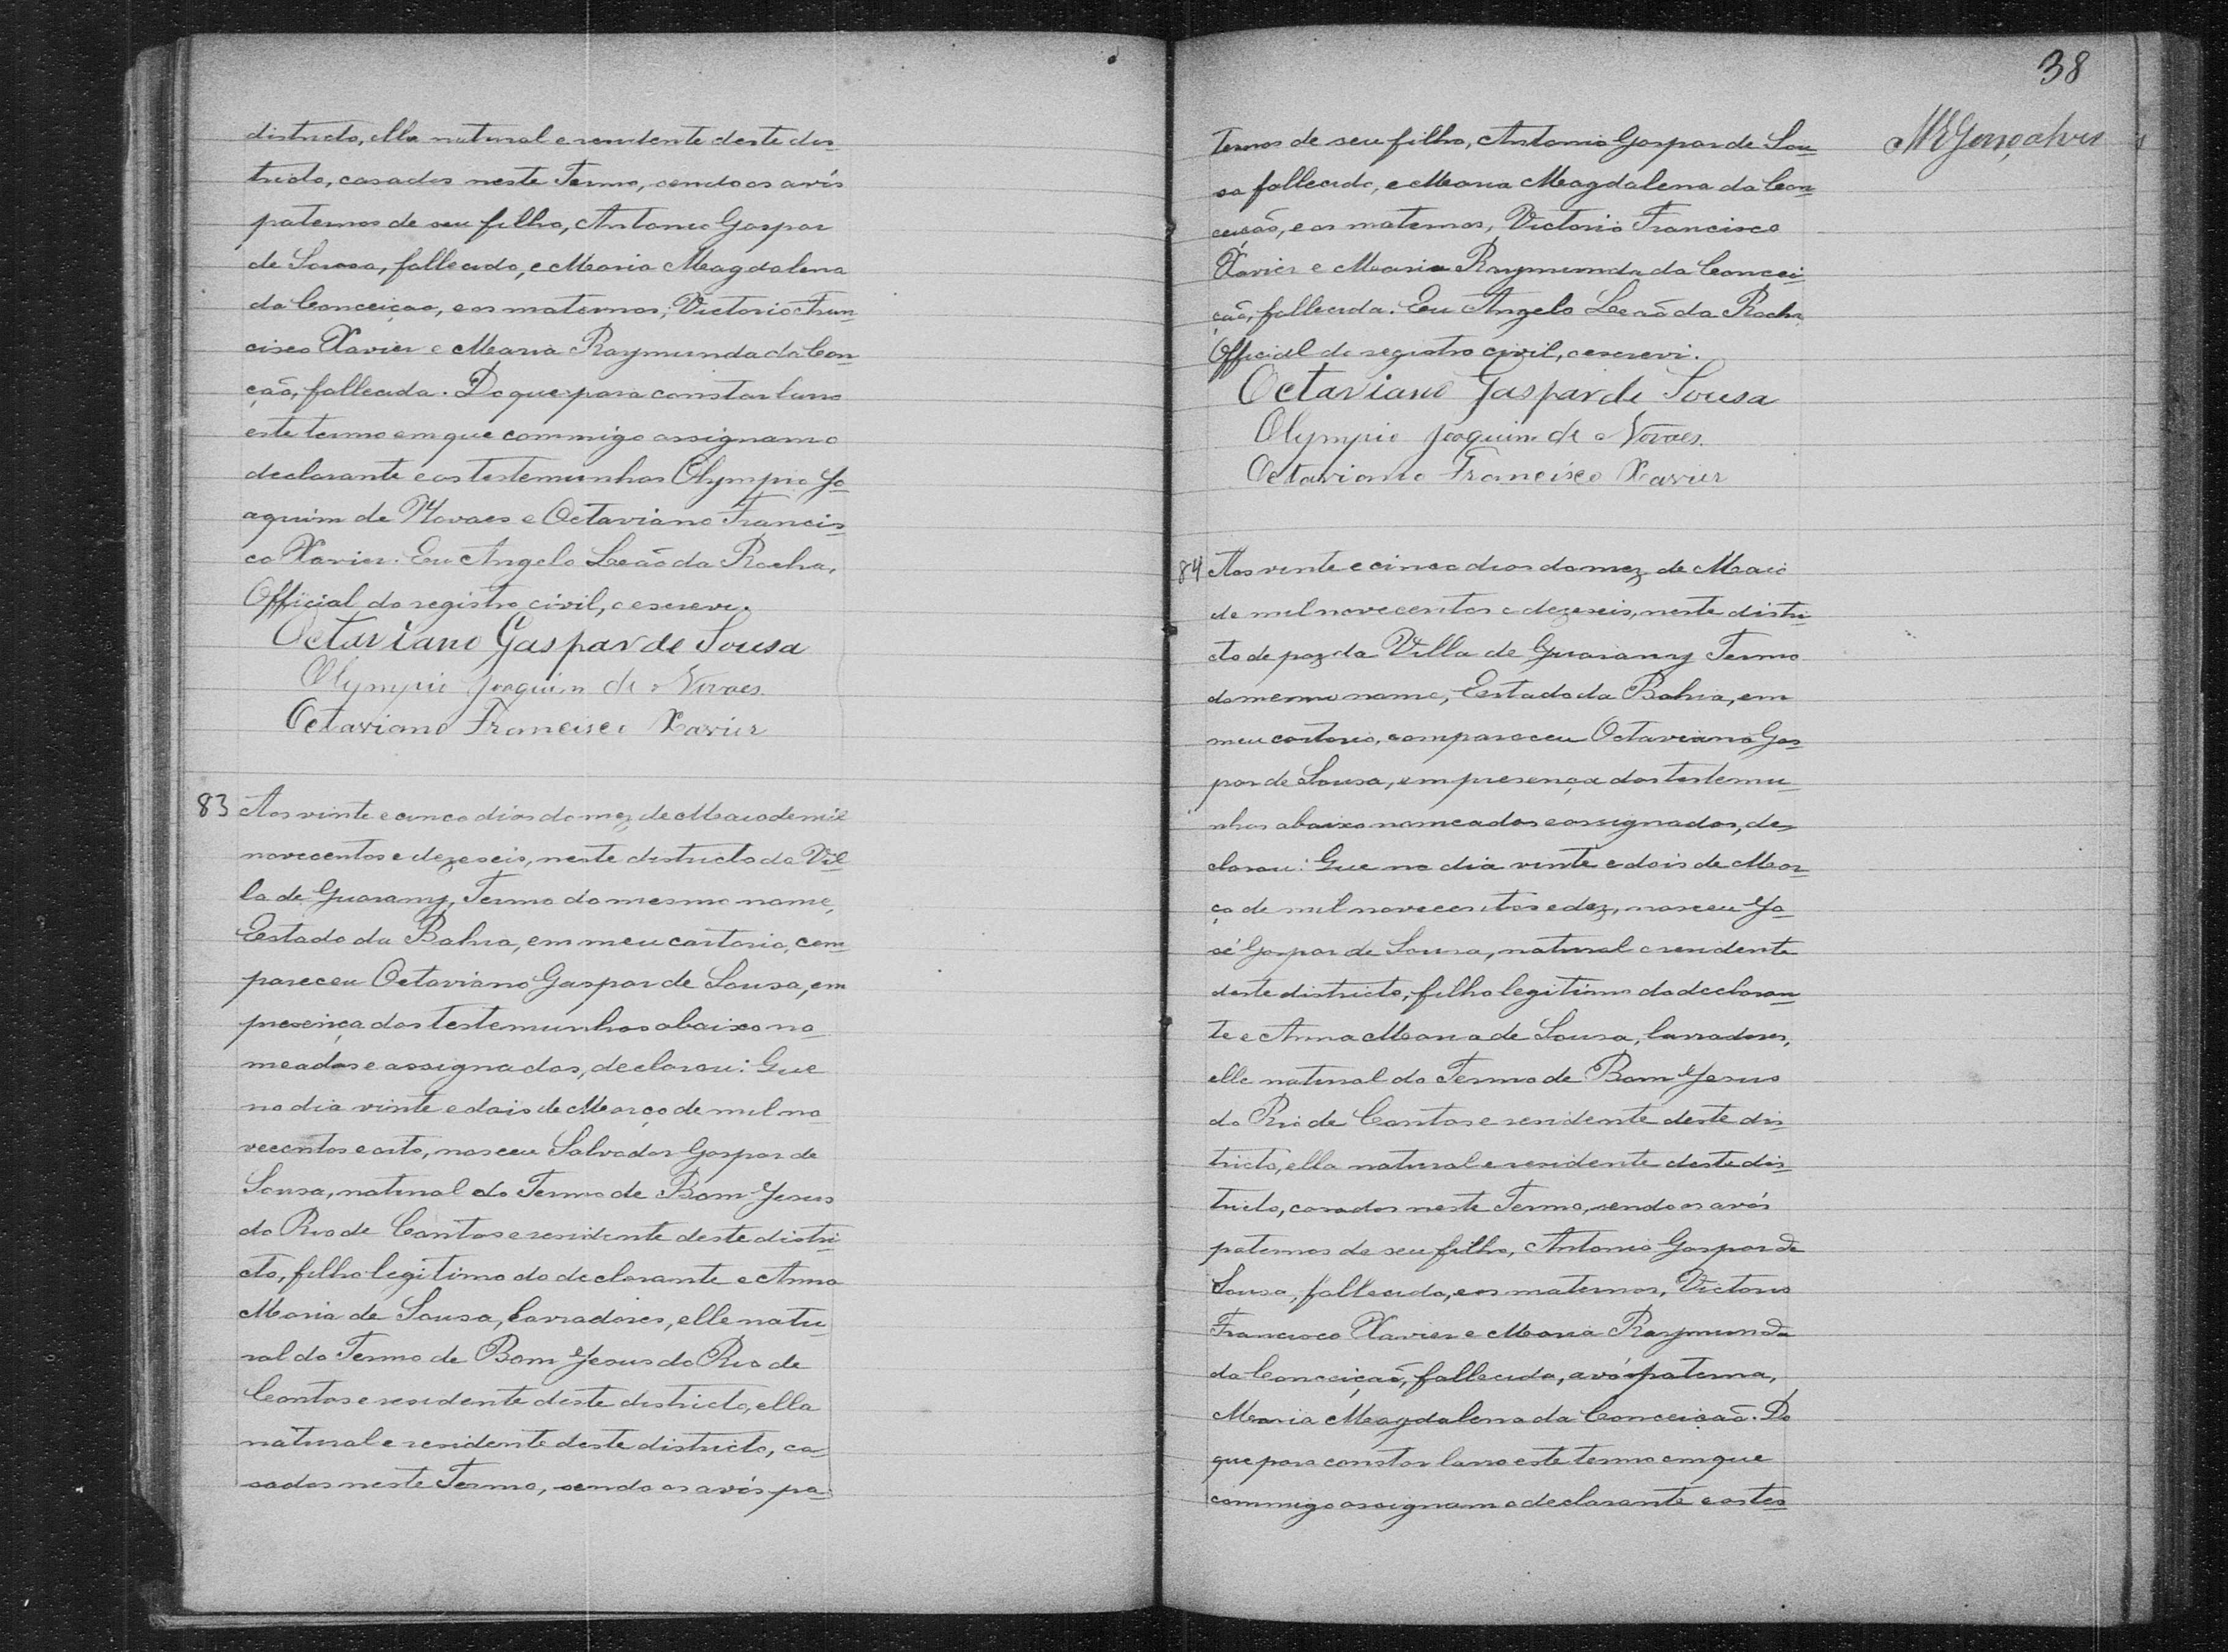 districto, ella natural e residente deste dis-
tricto, casados neste Termo, sendo os avós
paternos de seu filho, Antonio Gaspar
de Sousa, fallecido, e Maria Magdalena
da Conceiçao, e os maternos, Victorio Fran-
cisco Xavier e Maria Raymunda da Con-
ção, fallecida. Do que para constar lavro
este termo em que commigo assignam o
declarante e as testemunhas Olympio Jo-
aquim de Novaes e Octaviano Francis-
co Xavier. Eu Angelo Leão da Rocha,
Official do registro civil, o escrevi.
Octaviano Gaspar de Sousa
Olympio Joaquim de Novaes.
Octaviano Francisco Xavier
83 Aos vinte e cinco dias do mez de Maio de mil
novecentos e dezeseis, neste districto da Vil-
la de Guarany, Termo do mesmo nome,
Estado da Bahia, em meu cartorio, com-
pareceu Octaviano Gaspar de Sousa, em
presença das testemunhas abaixo no-
meadas e assignadas, declarou: Que
no dia vinte e dois de Março de mil no-
vecentos e oito, nasceu Salvador Gaspar de
Sousa, natural do Termo de Bom Jesus
do Rio de Contas e residente deste distri-
cto, filho legitimo do declarante e Anna
Maria de Sousa, lavradores, elle natu-
ral do Termo de Bom Jesus do Rio de
Contas e residente deste districto, ella
natural e residente deste districto, ca-
sados neste Termo, sendo os avós pa-
38
ternos de seu filho, Antonio Gaspar de Sou-
sa fallecido, e Maria Magdalena da Con-
ceição, e os maternos, Victorio Francisco
Xavier e Maria Raymunda da Concei-
ção, fallecida. Eu Angelo Leão da Rocha,
Official do registro civil, o escrevi.
Octaviano Gaspar de Sousa
Olympio Joaquim de Novaes.
Octaviano Francisco Xavier
84 Aos vinte e cinco dias do mez de Maio
de mil novecentos e dezeseis, neste distri-
cto de paz da Villa de Guarany Termo
do mesmo nome, Estado da Bahia, em
meu cartorio, compareceu Octaviano Gas-
par de Sousa, em presença das testemu-
nhas abaixo nomeadas e assignadas, de-
clarou: Que no dia vinte e dois de Mar-
ço de mil novecentos e dez, nasceu Jo-
sé Gaspar de Sousa, natural e residente
deste districto, filho legitimo do declaran-
te e Anna Maria de Sousa, lavradores,
elle natural do Termo de Bom Jesus
do Rio de Contas e residente deste dis-
tricto, ella natural e residente deste dis-
tricto, casados neste Termo, sendo os avós
paternos de seu filho, Antonio Gaspar de
Sousa, fallecido, e os maternos, Victorio
Francisco Xavier e Maria Raymunda
da Conceição, fallecida, avó paterna,
Maria Magdalena da Conceição. Do
que para constar lavro este termo em que
commigo assignam o declarante e as tes-